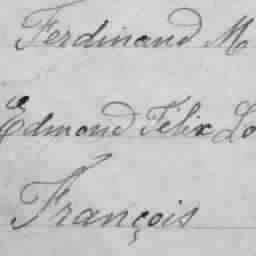 Ferdinand M
Edmond Félix Lo
François